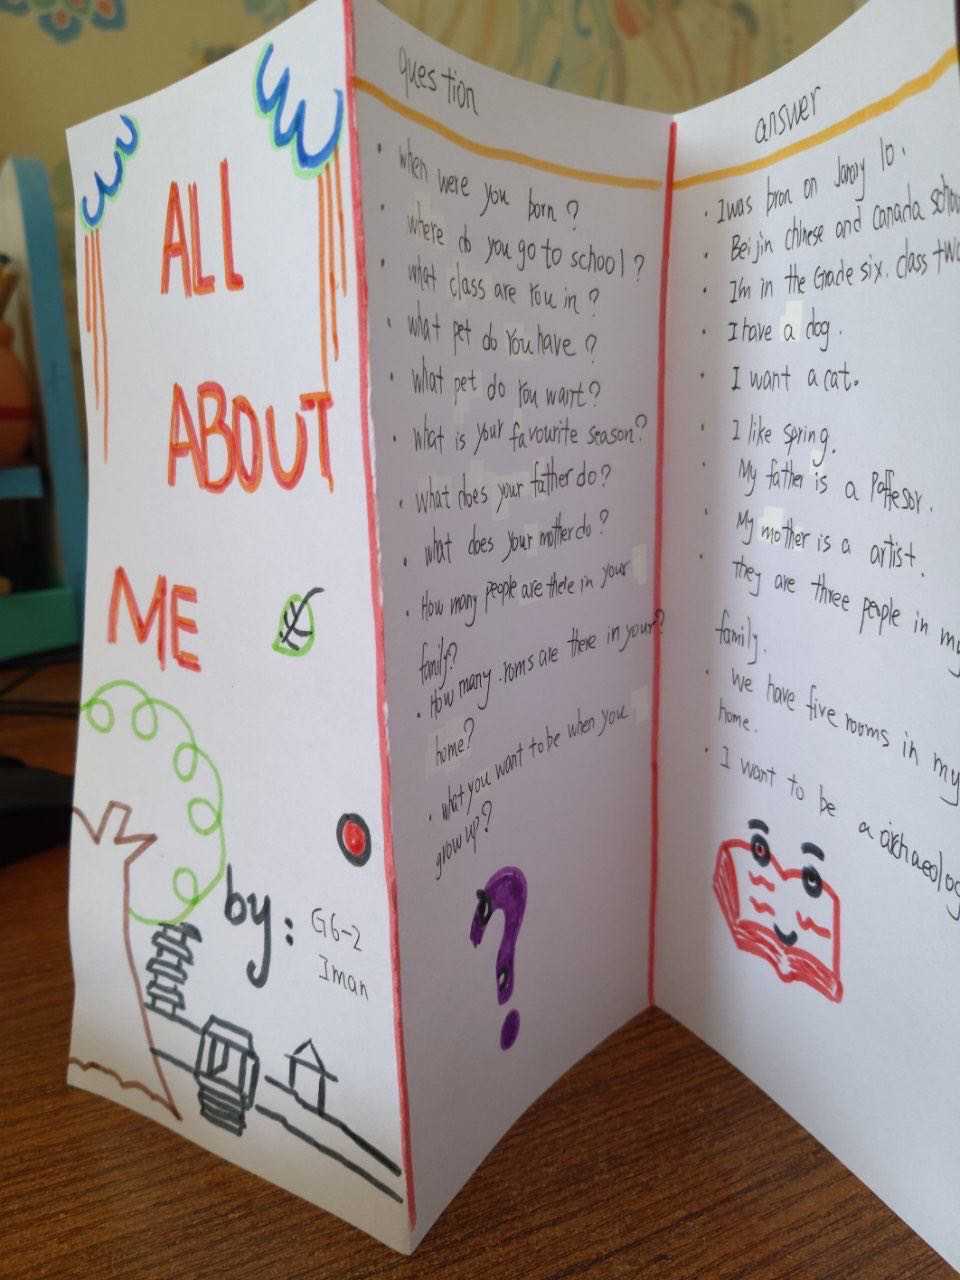 ALL
ABOUT
ME
by: G6-2
Iman
question
· when were you born?
· where do you go to school?
· what class are you in?
· what pet do you have?
· what pet do you want?
· what is your favourite season?
· what does your father do?
· what does your mother do?
· How many people are there in your
family?
· How many roms are there in your?
home?
· what you want to be when you
grow up?
answer
· I was bron on Janry 10.
· Beijin chinese and canada
· I'm in the Grade six. class two
· I have a dog.
· I want a cat.
· I like spring.
· My father is a Poffesor.
· My mother is a artist.
· they are three people in my
family.
· We have five rooms in my
home.
· I want to be a